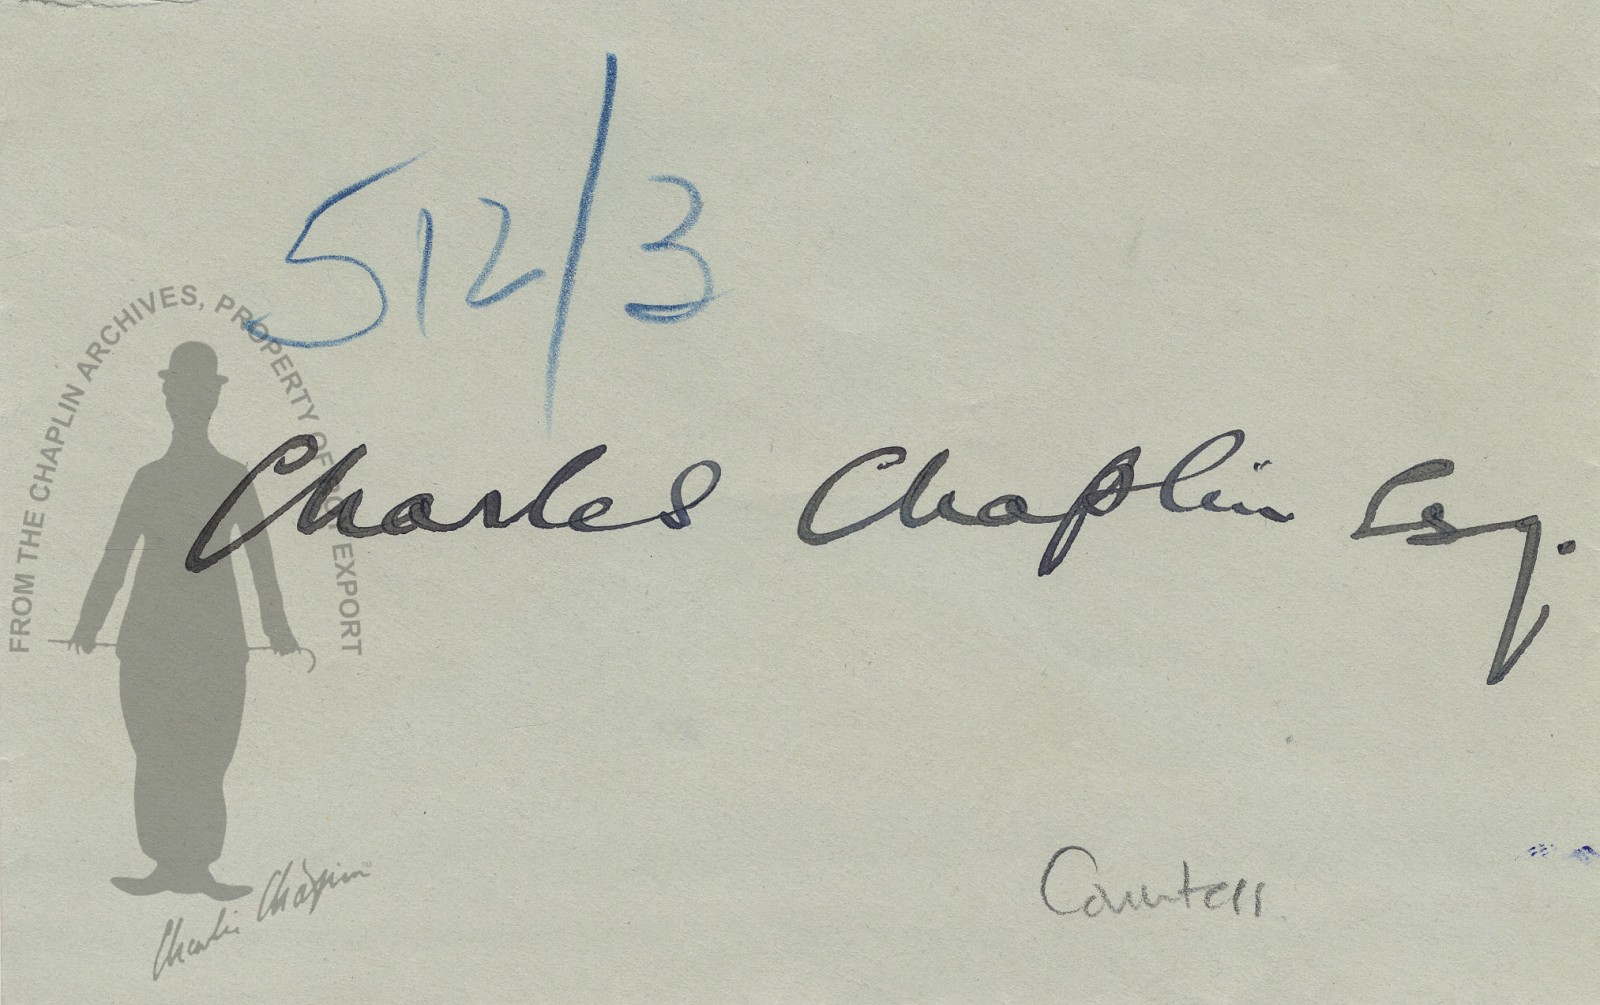 512/3
FROM THE CHAPLIN ARCHIVES, PROPERTY OF ROY EXPORT
Charles Chaplin Esq.
Charlie Chaplin
Countess